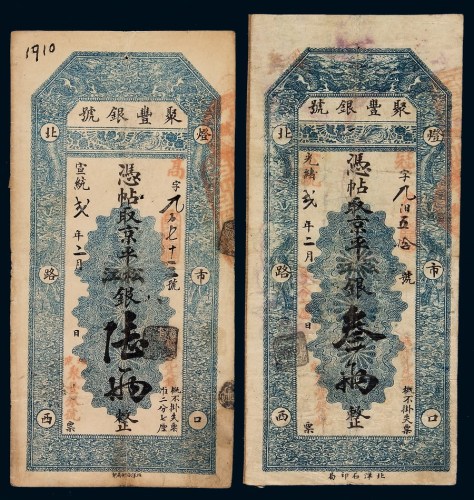 1910
聚豐銀號
北
燈
市
口
路
西
字九百七十二號
憑帖取京平松江銀陸兩整
宣統貳年二月 日 票
概不掛失票
聚豐銀號
北
燈
市
口
路
西
字九伯五拾號
憑帖取京平銀叁兩整
光緒貳年二月 日 票
概不掛失票
北洋石印局